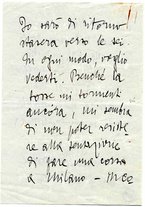 Io sarò di ritorno
stasera verso le sei.
In ogni modo, voglio
vederti. Benché la
tosse mi tormenti
ancóra, mi sembra
di non poter resiste
re alla tentazione
di fare una corsa
a Milano -